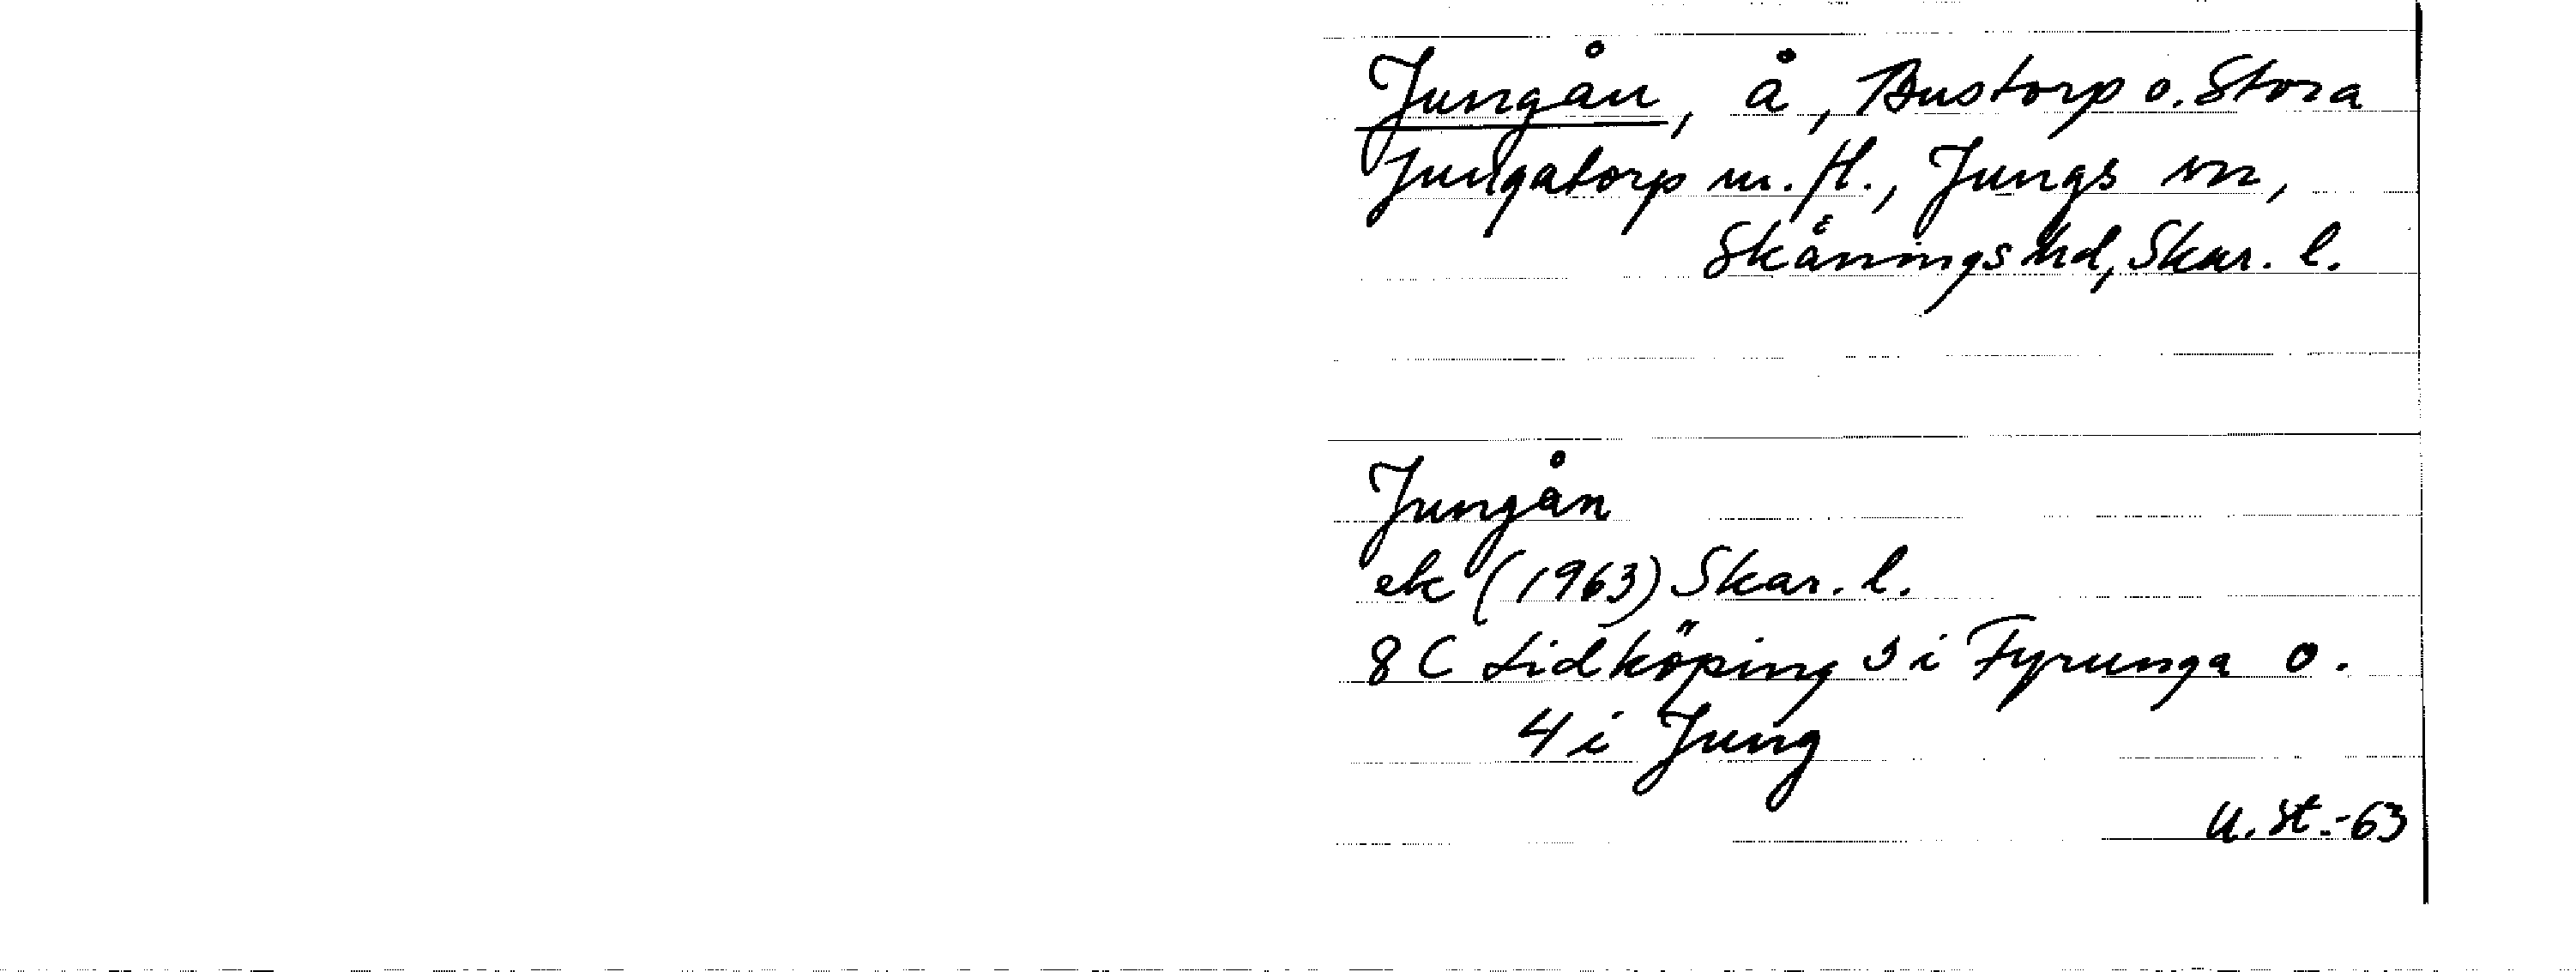 Jungån, å, Bustorp o. Stora
Jungatorp m. fl., Jungs sn,
Skånings hd, Skar. l.
Jungån
ek (1963) Skar. l.
8 C Lidköping 3 i Fyrunga o.
4 i Jung
U. St.-63